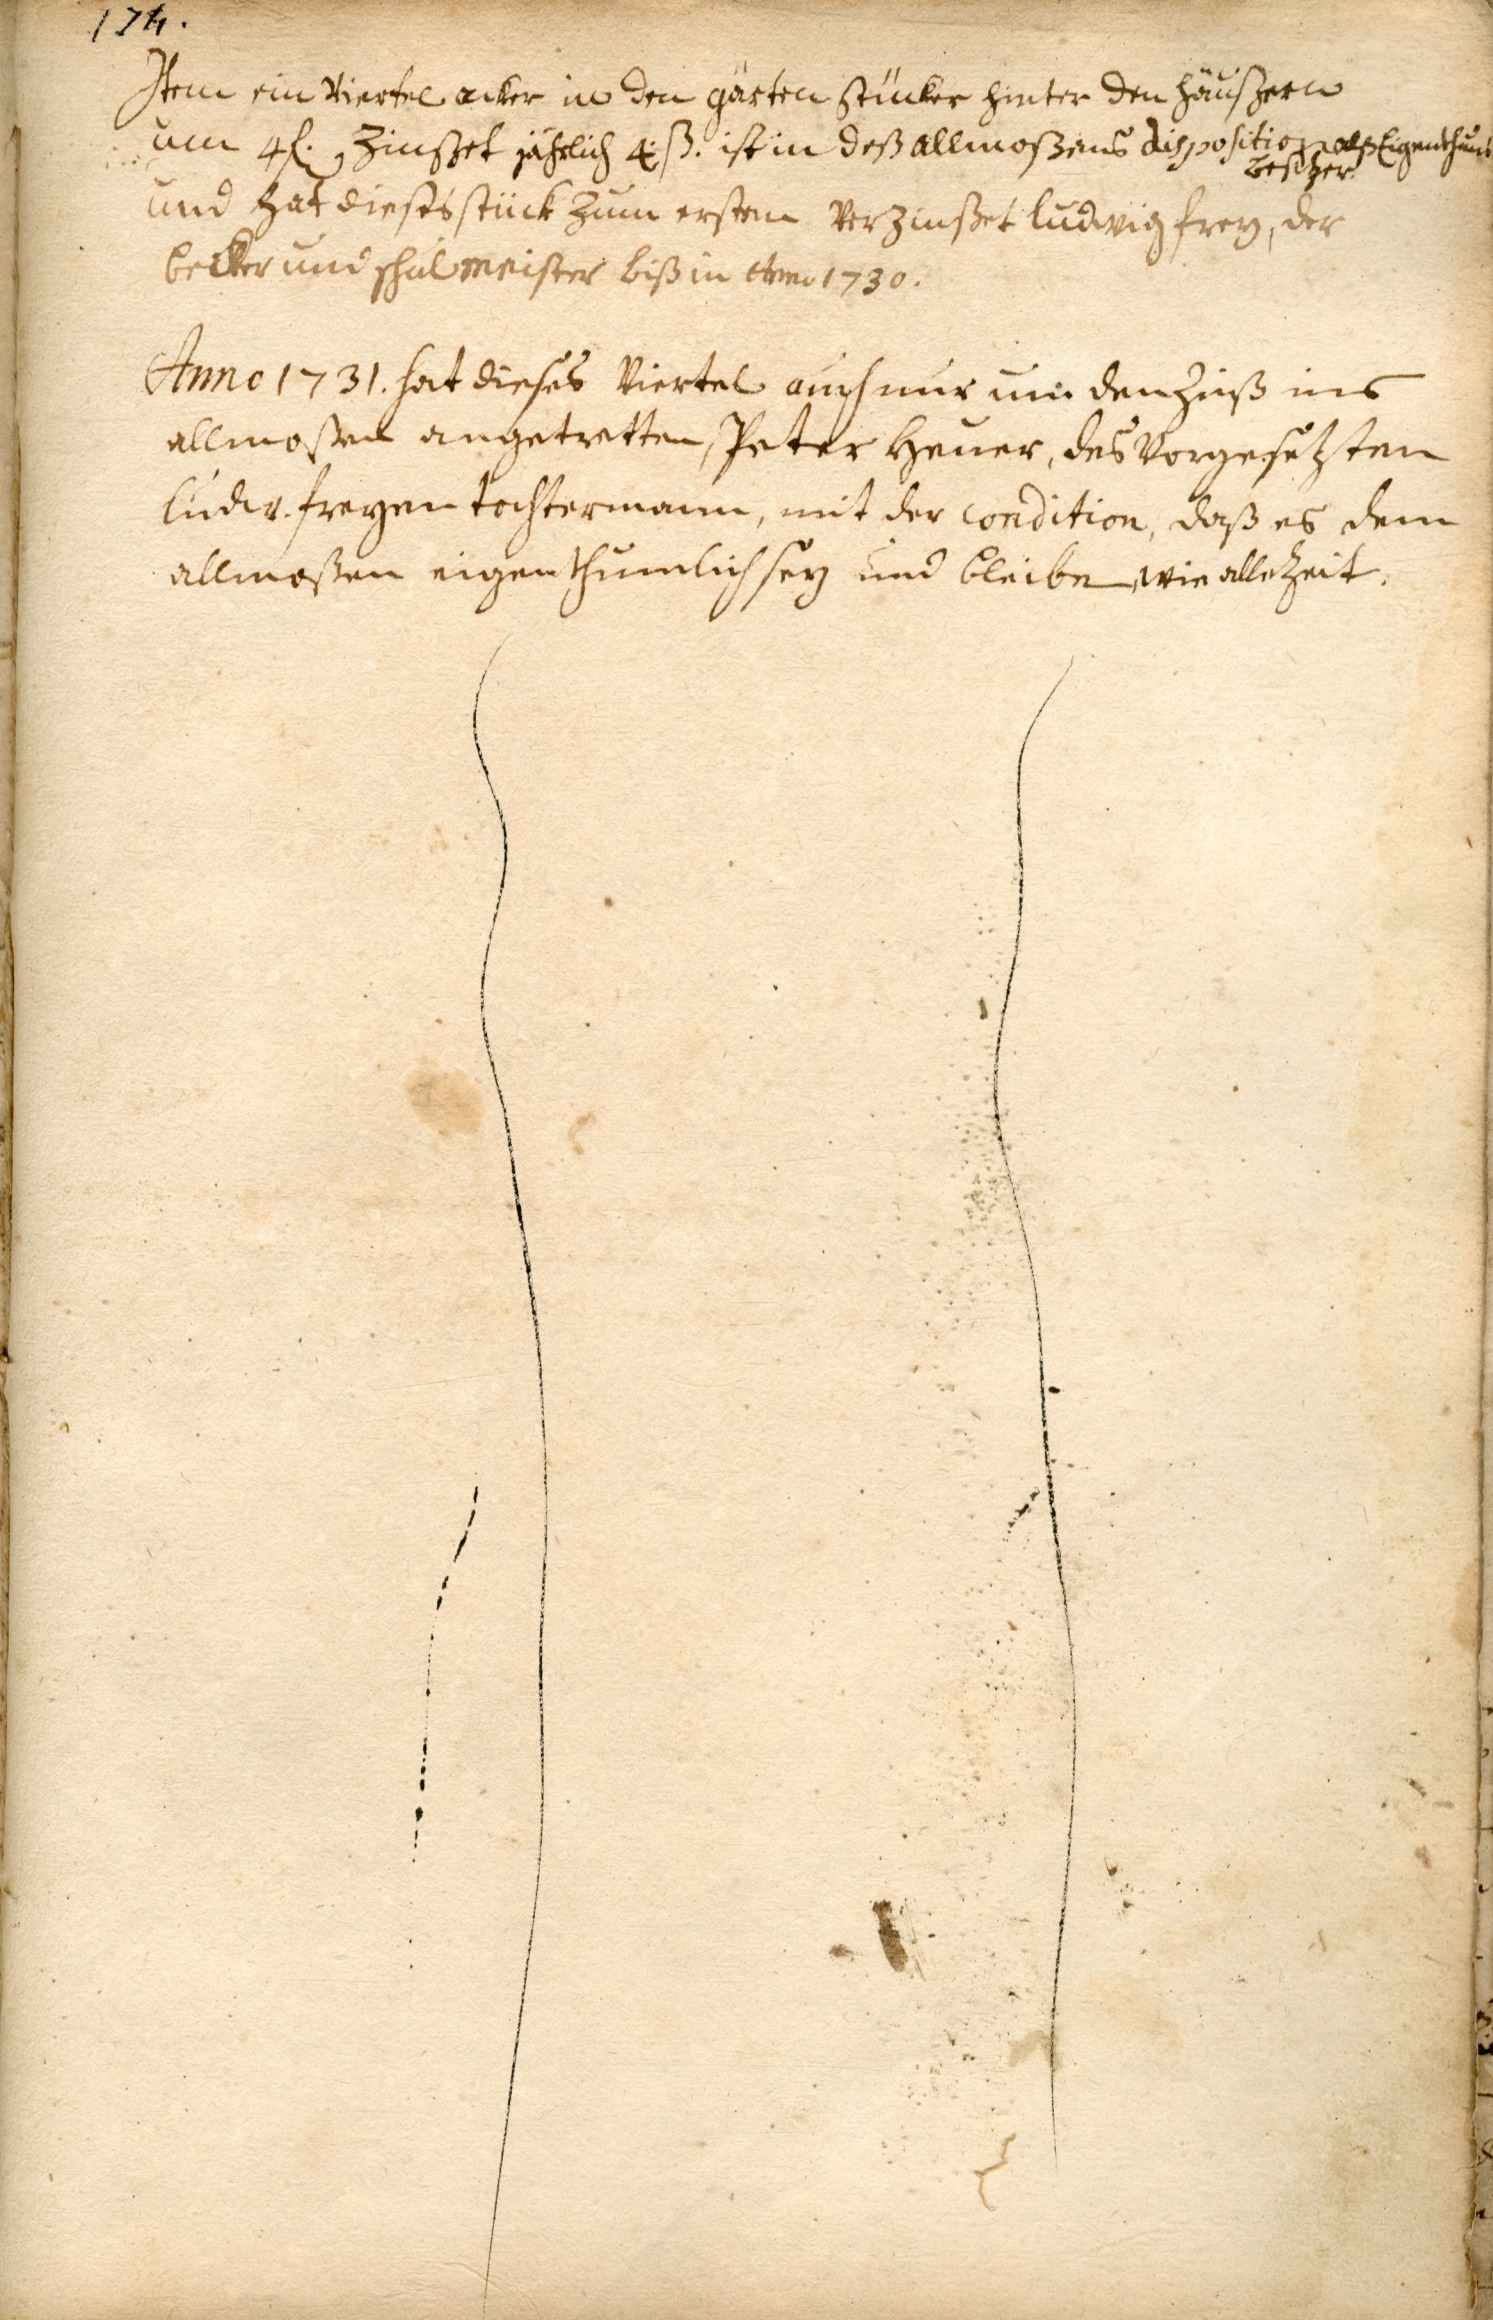 174.
Item ein Viertel acker in den gärten stücker hinter den häußern
um 4 f. Zinßet jährlich 4 ß. ist in deß allmoßens disposition alß Eigenthums
besitzer.
und hat dieses stück zum ersten verzinßet Ludwig Frey, der
becker und schulmeister biß in Anno 1730.
Anno 1731. hat dieses Viertel auch nur um den Zinß ins
allmoßen angetretten, Peter Heuer, des Vorgesetzten
Ludw. Freyen tochtermann, mit der condition, daß es dem
allmoßen eigenthumlich sey und bleibe, wie allezeit.